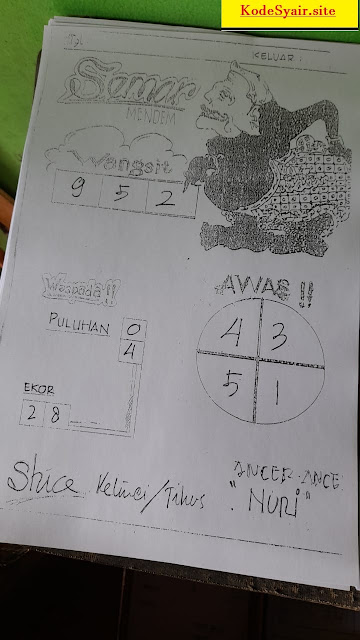 KodeSyair.site
Tgl
KELUAR :
Semar
MENDEM
Wangsit
9 5 2
Waspada !!
AWAS !!
PULUHAN 0
4
4 3
5 1
EKOR
2 8
Shice Kelinci/Tikus
ANCER-ANCE
"NURI"